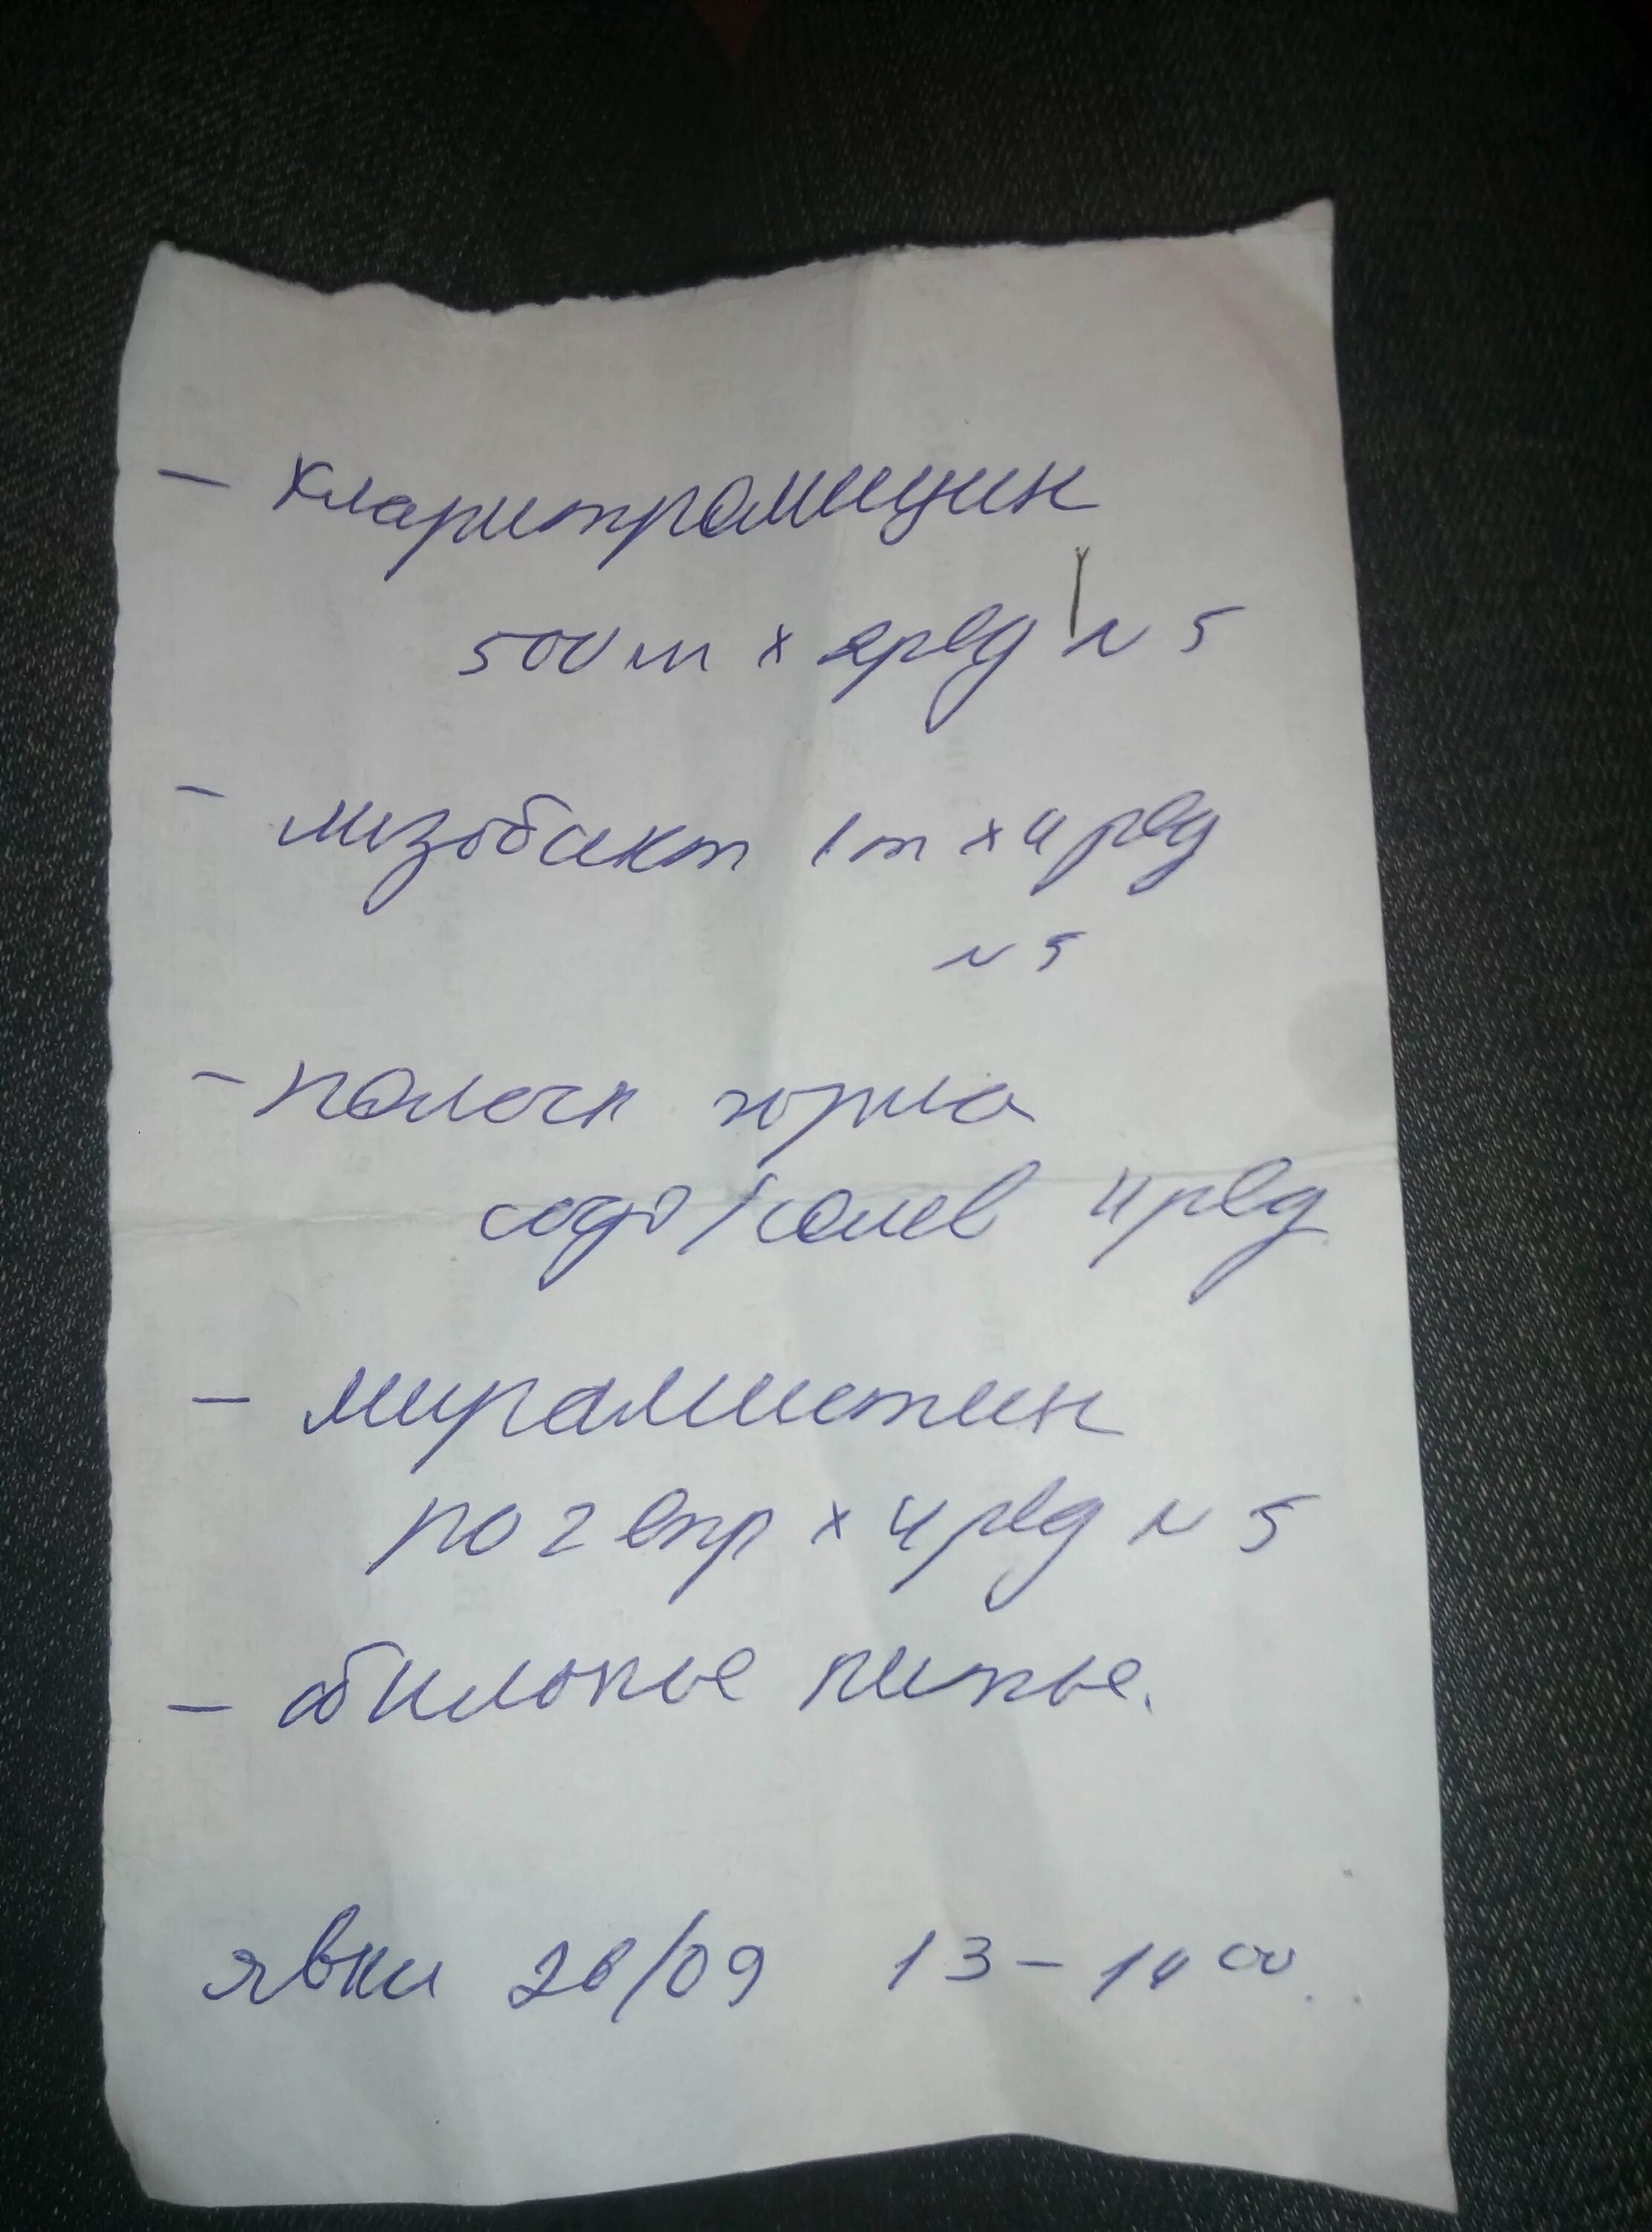 - кларитромицин
500 m x 2 р в д N 5
- лизобакт 1 т x 4 р в д
N 5
- полоск горла
содо/солев 4 р в д
- мирамистин
по 2 впр x 4 р в д N 5
- обильное питье.
явка 26/09 13 - 14 00